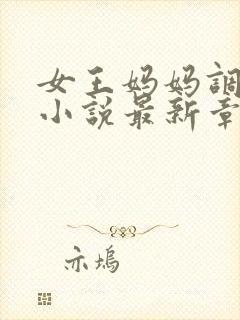 女王妈妈調
小説最新章
亦塢